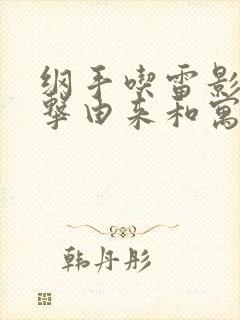 纲手喫雷影
擊由来和寓
韩丹彤